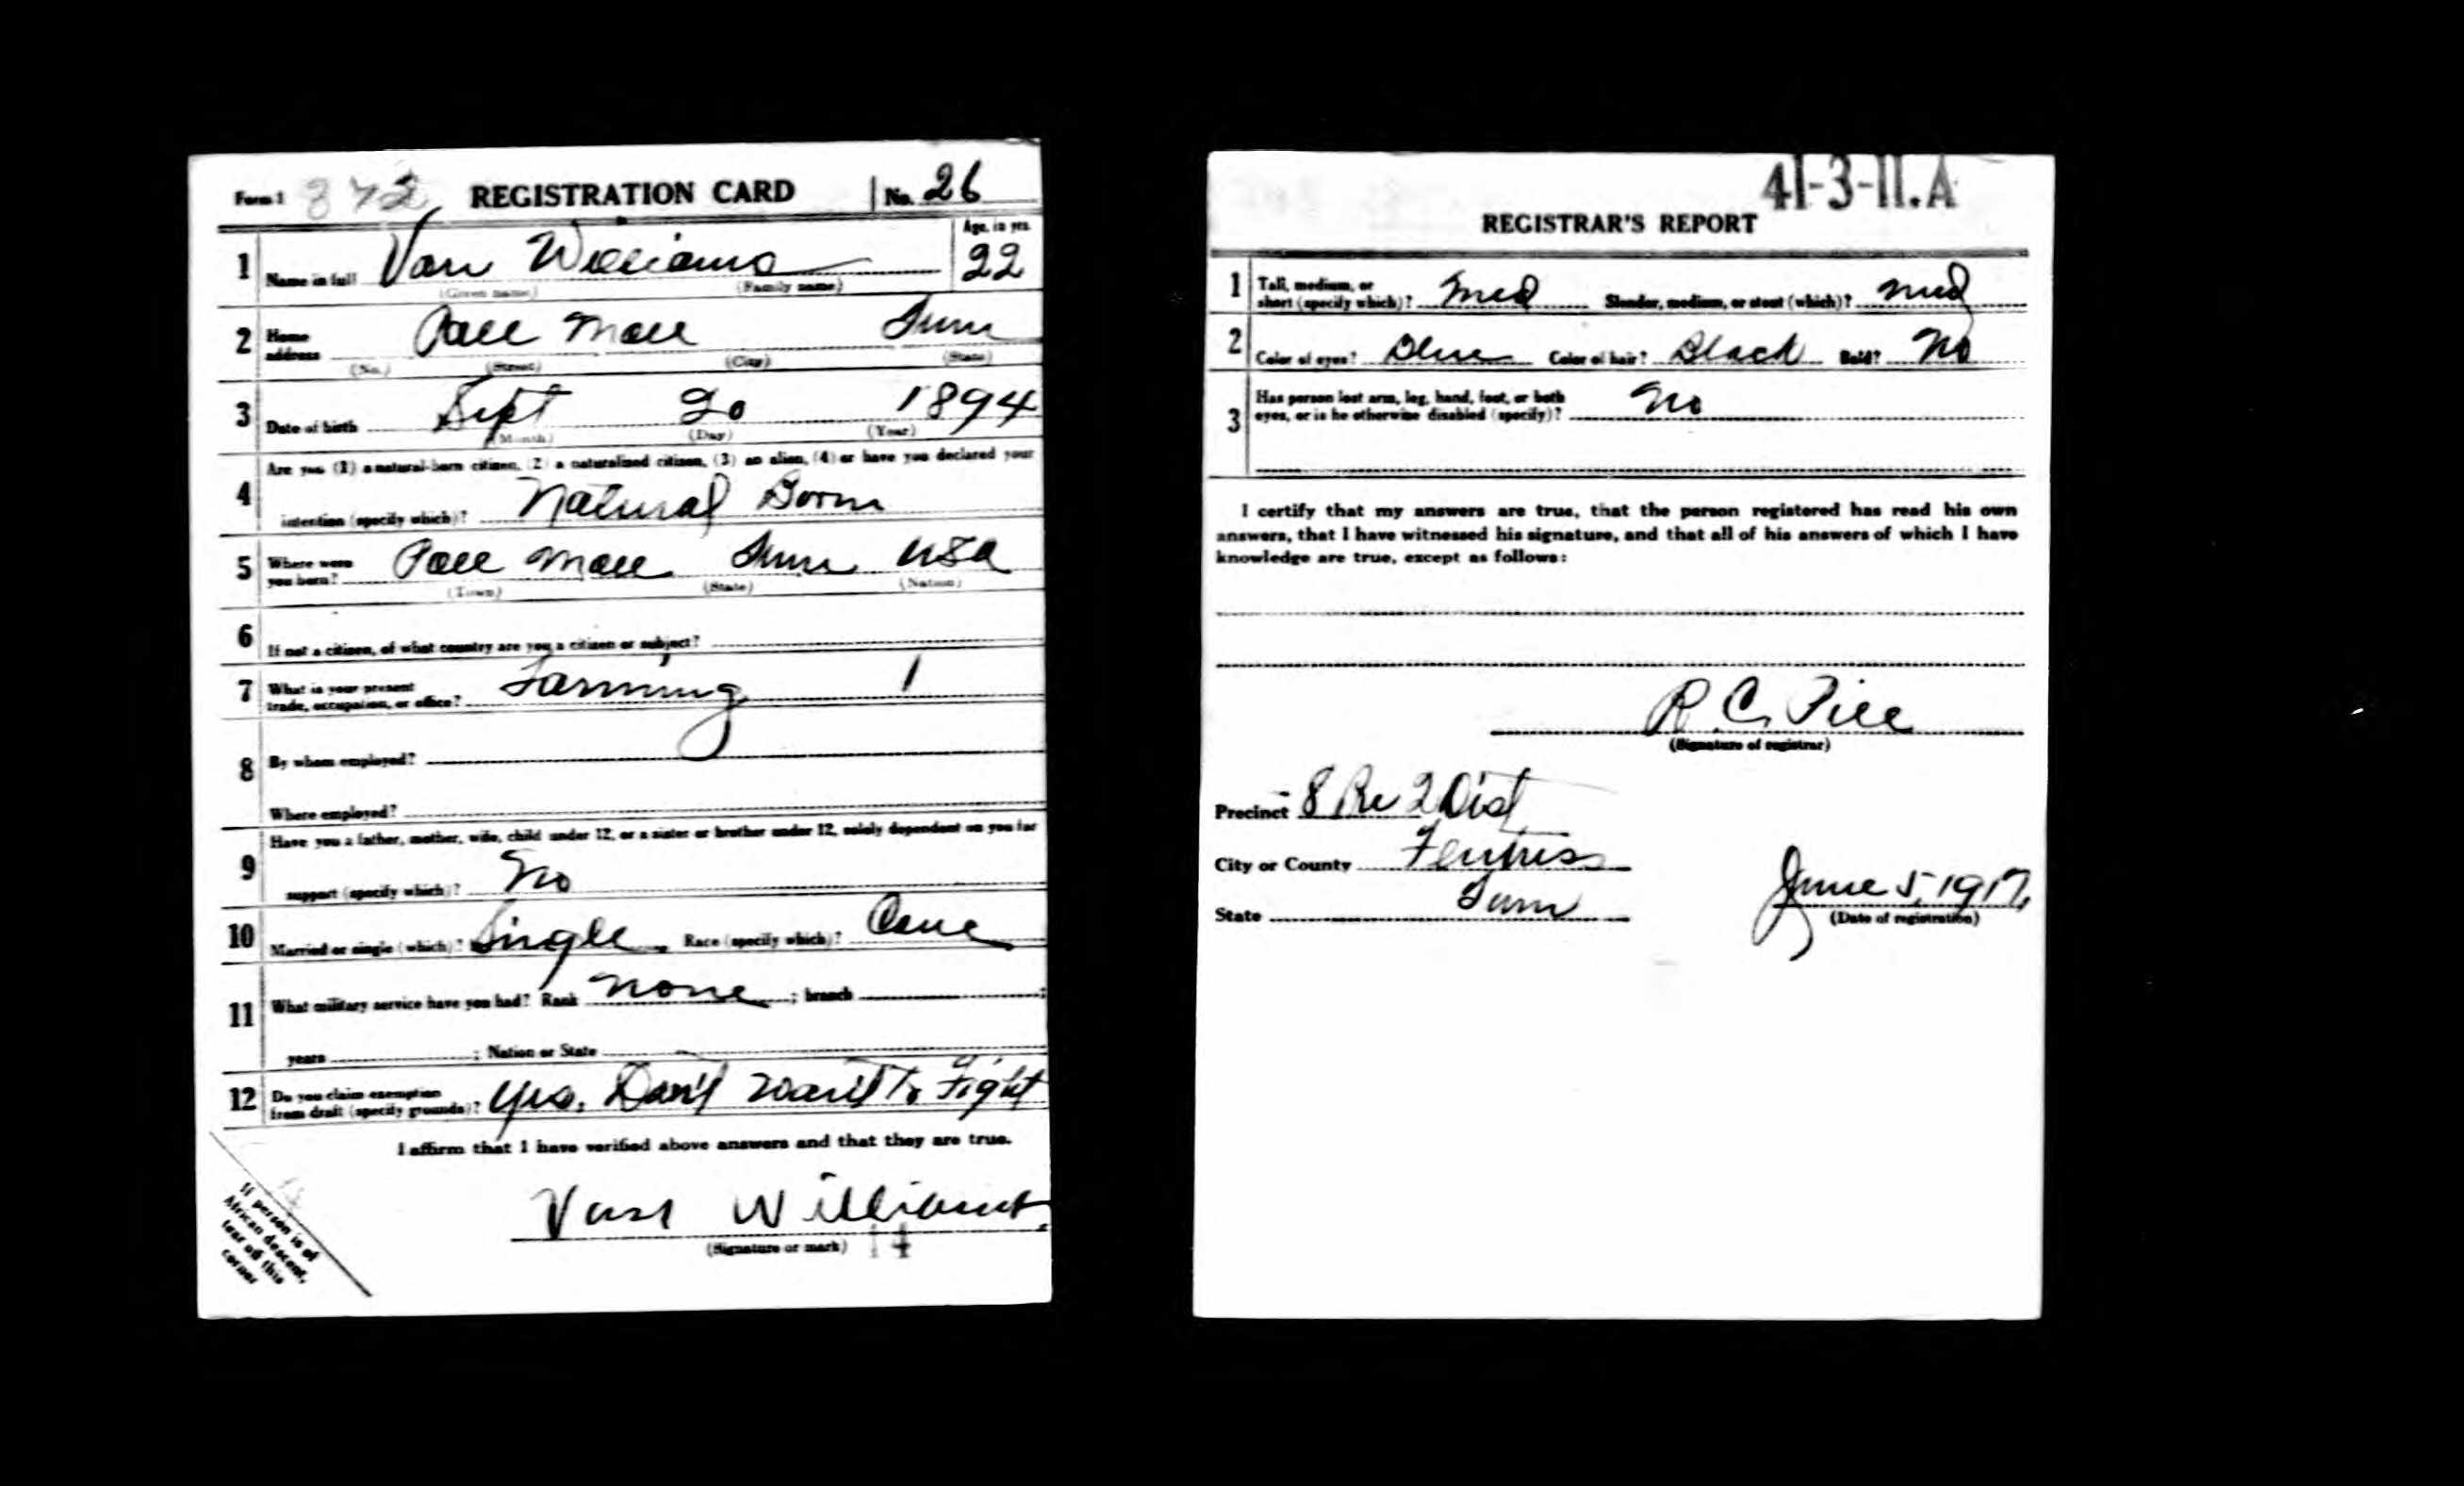 Form 1 372 REGISTRATION CARD No. 26
1 Name in full Van Williams Age, in yrs. 22
(Given name) (Family name)
2 Home address Pall Mall Tenn
(No.) (Street) (City) (State)
3 Date of birth Sept 20 1894
(Month) (Day) (Year)
4 Are you (1) a natural-born citizen, (2) a naturalized citizen, (3) an alien, (4) or have you declared your
intention (specify which)? Natural Born
5 Where were you born? Pall Mall Tenn USA
(Town) (State) (Nation)
6 If not a citizen, of what country are you a citizen or subject?
7 What is your present trade, occupation, or office? Farming 1
8 By whom employed?
Where employed?
9 Have you a father, mother, wife, child under 12, or a sister or brother under 12, solely dependent on you for
support (specify which)? No
10 Married or single (which)? Single Race (specify which)? Cauc
11 What military service have you had? Rank None ; branch ;
years ; Nation or State
12 Do you claim exemption from draft (specify grounds)? Yes. Don't want to Fight
I affirm that I have verified above answers and that they are true.
Van Williams
(Signature or mark) 14
If person is of
African descent,
tear off this
corner
41-3-11.A
REGISTRAR'S REPORT
1 Tall, medium, or short (specify which)? Med Slender, medium, or stout (which)? Med
2 Color of eyes? Blue Color of hair? Black Bald? No
3 Has person lost arm, leg, hand, foot, or both
eyes, or is he otherwise disabled (specify)? No
I certify that my answers are true, that the person registered has read his own
answers, that I have witnessed his signature, and that all of his answers of which I have
knowledge are true, except as follows:
R. C. Pile
(Signature of registrar)
Precinct 8 Re 2 Dist
City or County Fentress
State Tenn
June 5, 1917
(Date of registration)